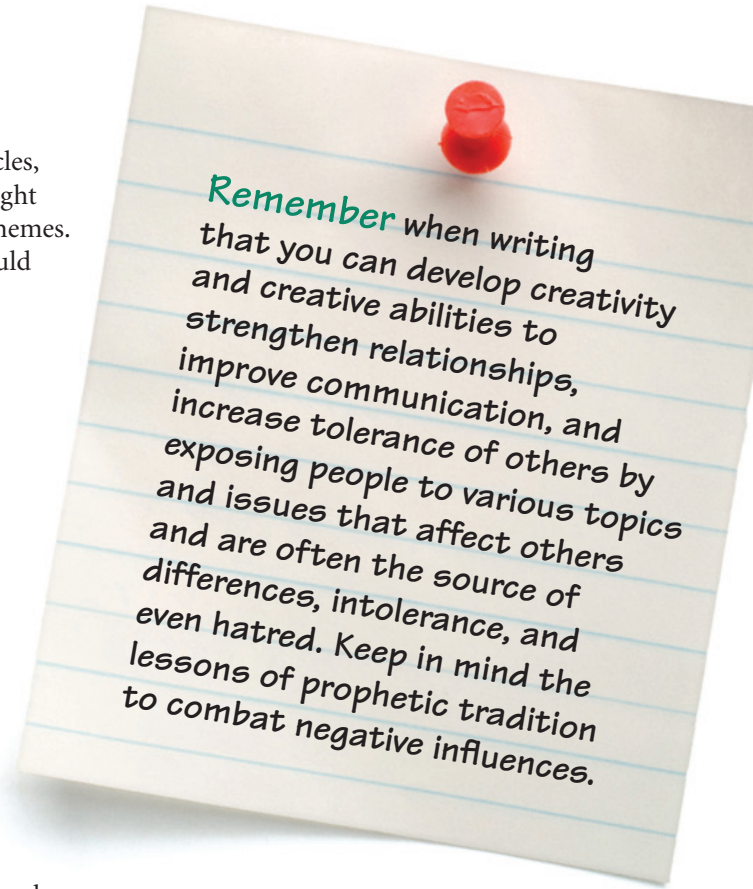 cles,
ght
hemes.
uld
Remember when writing
that you can develop creativity
and creative abilities to
strengthen relationships,
improve communication, and
increase tolerance of others by
exposing people to various topics
and issues that affect others
and are often the source of
differences, intolerance, and
even hatred. Keep in mind the
lessons of prophetic tradition
to combat negative influences.